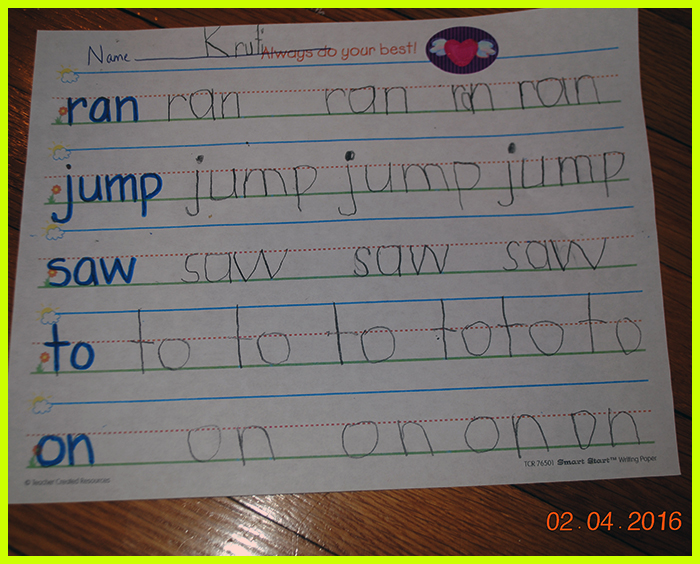 Name Kruti Always do your best!
ran ran ran ran ran
jump jump jump jump
saw saw saw saw
to to to to to to to
on on on on on
TCR 76501 Smart Start™ Writing Paper
© Teacher Created Resources
02.04.2016